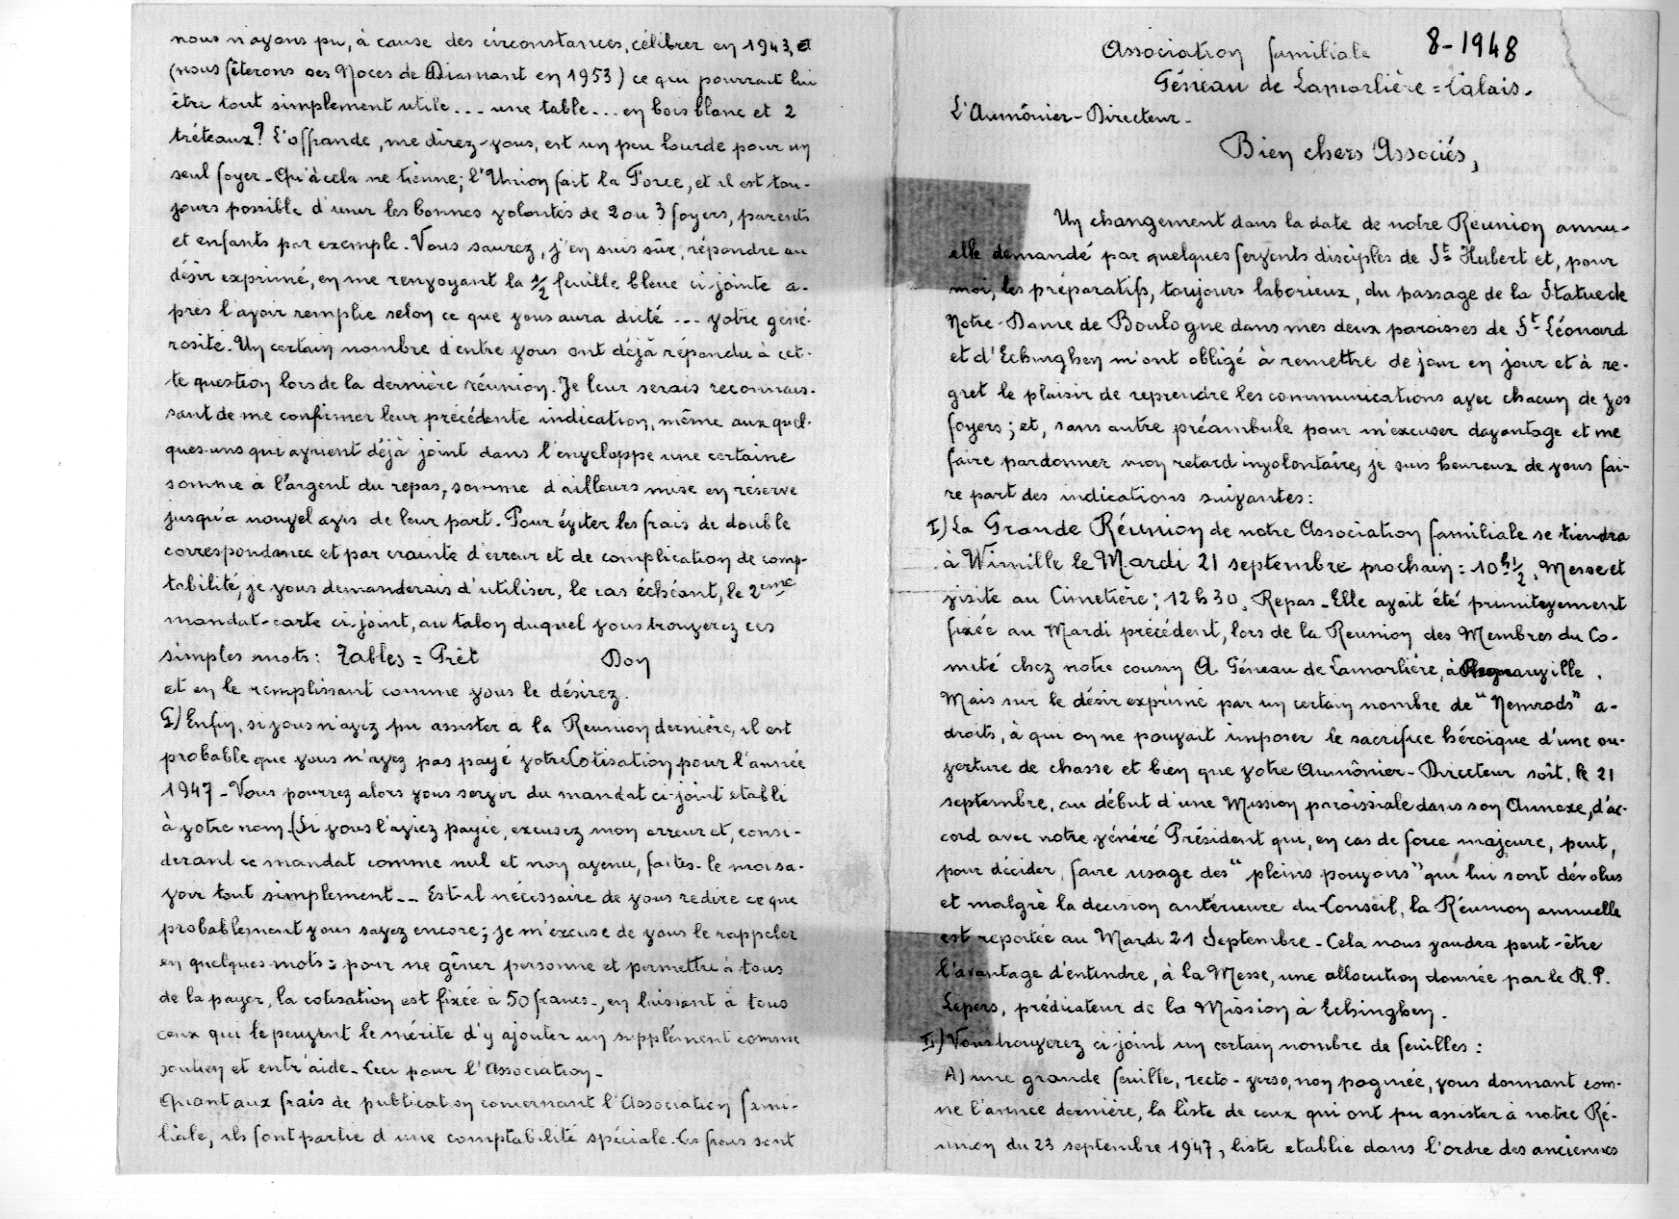 nous n'avons pu, à cause des circonstances, célébrer en 1943, et
(nous fêterons ses Noces de Diamant en 1953) ce qui pourrait lui
être tout simplement utile... une table... en bois blanc et 2
tréteaux? L'offrande, me direz-vous, est un peu lourde pour un
seul foyer - Qu'à cela ne tienne; l'Union fait la Force, et il est tou-
jours possible d'unir les bonnes volontés de 2 ou 3 foyers, parents
et enfants par exemple. Vous saurez, j'en suis sûr, répondre au
désir exprimé, en me renvoyant la 1/2 feuille bleue ci-jointe a-
près l'avoir remplie selon ce que vous aura dicté... votre géné-
rosité. Un certain nombre d'entre vous ont déjà répondu à cet-
te question lors de la dernière réunion. Je leur serais reconnais-
sant de me confirmer leur précédente indication, même aux quel-
ques-uns qui avaient déjà joint dans l'enveloppe une certaine
somme à l'argent du repas, somme d'ailleurs mise en réserve
jusqu'à nouvel avis de leur part. Pour éviter les frais de double
correspondance et par crainte d'erreur et de complication de comp-
tabilité, je vous demanderais d'utiliser, le cas échéant, le 2ème
mandat-carte ci-joint, au talon duquel vous trouverez ces
simples mots: Tables = Prêt Don
et en le remplissant comme vous le désirez.
G) Enfin, si vous n'avez pu assister à la Réunion dernière, il est
probable que vous n'avez pas payé votre Cotisation pour l'année
1947 - Vous pourrez alors vous servir du mandat ci-joint établi
à votre nom. (Si vous l'aviez payée, excusez mon erreur et, consi-
dérant ce mandat comme nul et non avenu, faites-le moi sa-
voir tout simplement -- Est-il nécessaire de vous redire ce que
probablement vous savez encore; je m'excuse de vous le rappeler
en quelques mots: pour ne gêner personne et permettre à tous
de la payer, la cotisation est fixée à 50 francs-, en laissant à tous
ceux qui le peuvent le mérite d'y ajouter un supplément comme
soutien et entr'aide - Ceci pour l'Association -
Quant aux frais de publication concernant l'Association fami-
liale, ils font partie d'une comptabilité spéciale. Ces frais sont
Association familiale 8-1948
Géneau de Lamarlière = Calais.
L'Aumônier-Directeur.
Bien chers Associés,
Un changement dans la date de notre Réunion annu-
elle demandé par quelques fervents disciples de St Hubert et, pour
moi, les préparatifs, toujours laborieux, du passage de la Statue de
Notre-Dame de Boulogne dans mes deux paroisses de St-Léonard
et d'Echinghen m'ont obligé à remettre de jour en jour et à re-
gret le plaisir de reprendre les communications avec chacun de vos
foyers; et, sans autre préambule pour m'excuser davantage et me
faire pardonner mon retard involontaire, je suis heureux de vous fai-
re part des indications suivantes:
I) La Grande Réunion de notre Association familiale se tiendra
à Wimille le Mardi 21 septembre prochain: 10h1/2, Messe et
visite au Cimetière; 12h30, Repas - Elle avait été primitivement
fixée au Mardi précédent, lors de la Réunion des Membres du Co-
mité chez notre cousin A. Géneau de Lamarlière, à
Mais sur le désir exprimé par un certain nombre de "Nemrods" a-
droits, à qui on ne pouvait imposer le sacrifice héroïque d'une ou-
verture de chasse et bien que votre Aumônier-Directeur soit, le 21
septembre, au début d'une Mission paroissiale dans son Annexe, d'ac-
cord avec notre vénéré Président qui, en cas de force majeure, peut,
pour décider, faire usage des "pleins pouvoirs" qui lui sont dévolus
et malgré la décision antérieure du Conseil, la Réunion annuelle
est reportée au Mardi 21 Septembre - Cela nous vaudra peut-être
l'avantage d'entendre, à la Messe, une allocution donnée par le R.P.
Lepers, prédicateur de la Mission à Echinghen.
II) Vous trouverez ci-joint un certain nombre de feuilles:
A) une grande feuille, recto-verso, non paginée, vous donnant com-
me l'année dernière, la liste de ceux qui ont pu assister à notre Ré-
union du 23 septembre 1947, liste établie dans l'ordre des anciennes